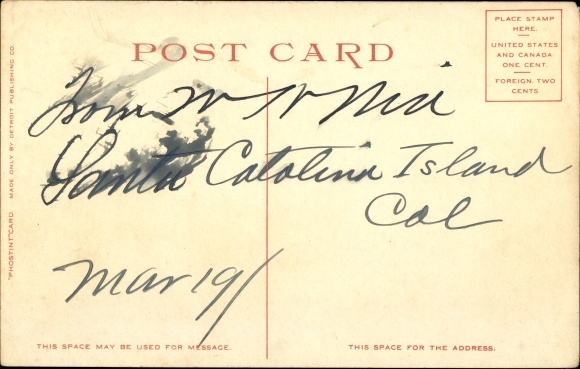 POST CARD
PLACE STAMP
HERE.
UNITED STATES
AND CANADA
ONE CENT.
FOREIGN, TWO
CENTS.
From W
Santa Catalina Island
Cal
Mar 19
"PHOSTINT" CARD. MADE ONLY BY DETROIT PUBLISHING CO.
THIS SPACE MAY BE USED FOR MESSAGE.
THIS SPACE FOR THE ADDRESS.